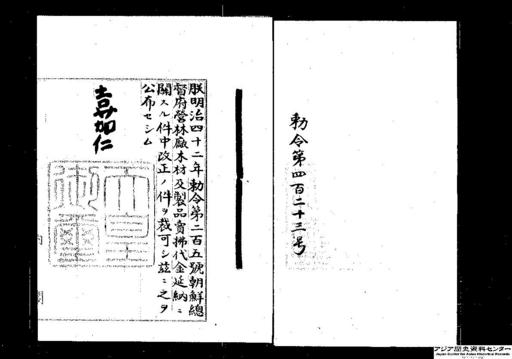 勅令第四百二十三号
朕明治四十二年勅令第二百五號朝鮮總
督府營林廠木材及製品賣拂代金延納ニ
關スル件中改正ノ件ヲ裁可シ茲ニ之ヲ
公布セシム
嘉仁
天皇
御璽
アジア歴史資料センター
Japan Center for Asian Historical Records